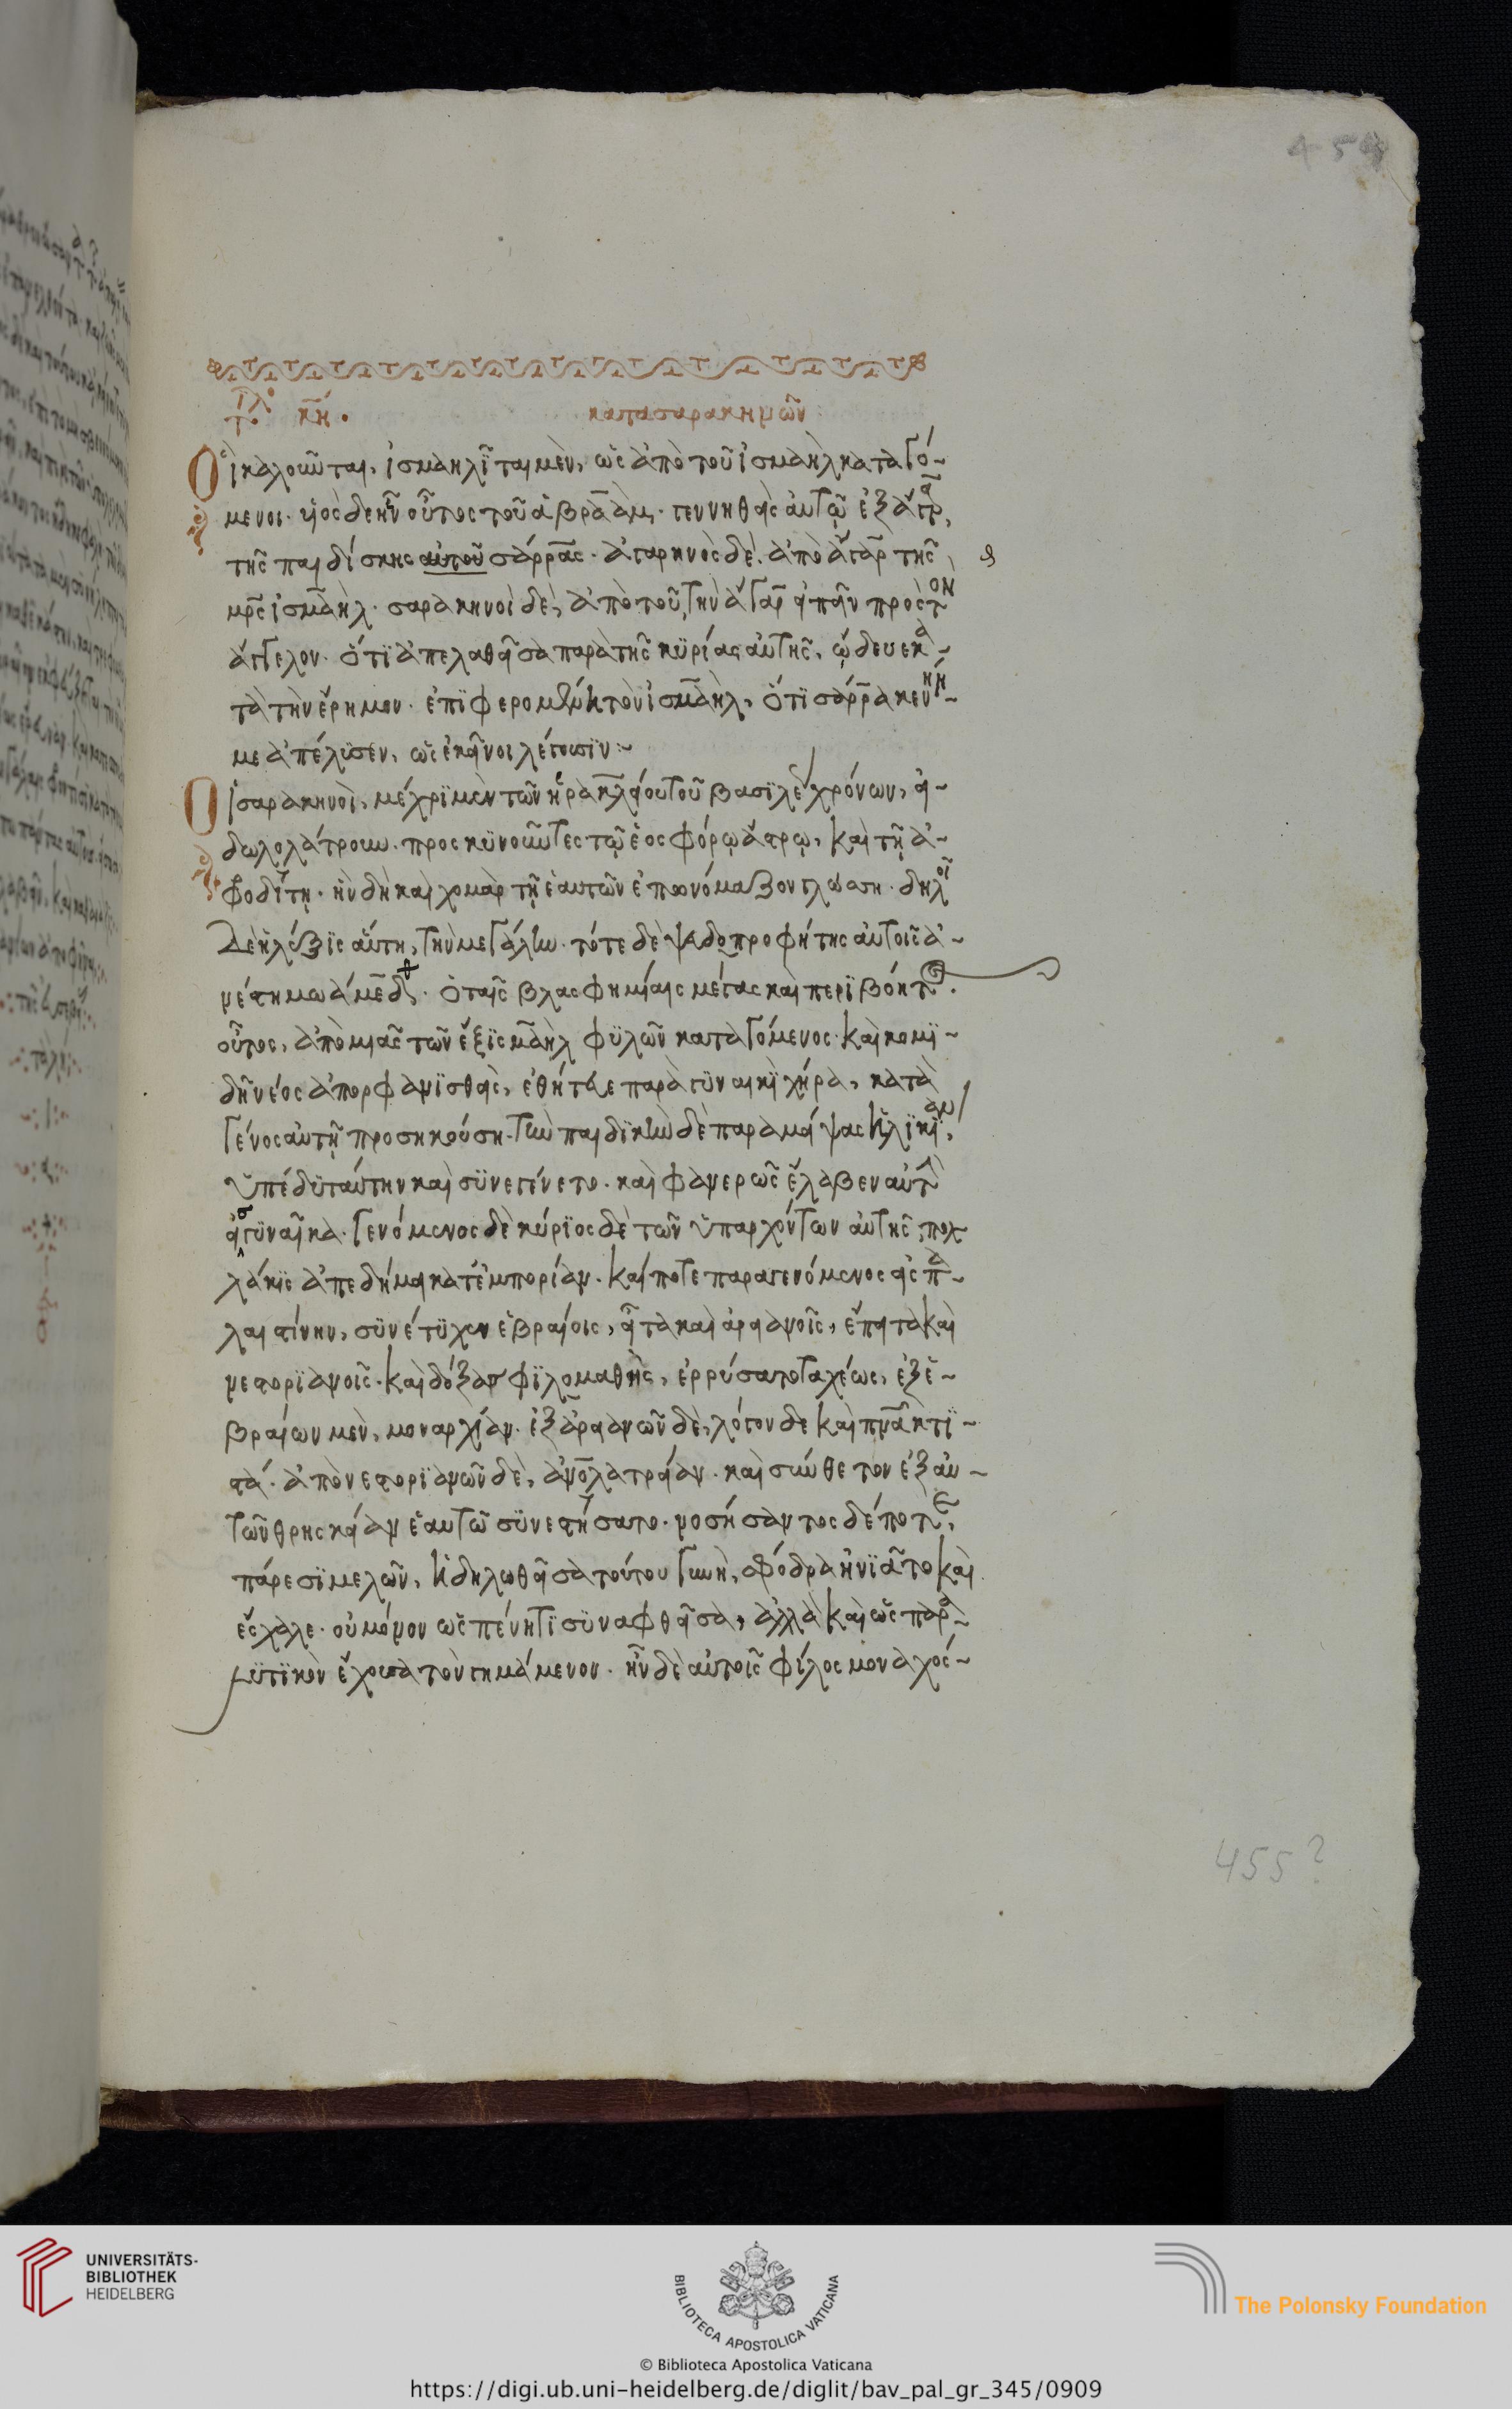 454
τίτλος κη. κατὰ σαρακηνῶν
Οἱ καλοῦνται, ἰσμαηλῖται μὲν, ὡς ἀπὸ τοῦ ἰσμαὴλ καταγό-
μενοι. υἱὸς δὲ ἦν οὗτος τοῦ ἀβραὰμ. γεννηθεὶς αὐτῷ ἐξ ἄγαρ,
τῆς παιδίσκης αὐτοῦ σάρρας. ἀγαρηνοὶ δὲ. ἀπὸ ἄγαρ τῆς
μρ̅ς ἰσμαὴλ. σαρακηνοὶ δὲ, ἀπὸ τοῦ, τὴν ἄγαρ εἰπεῖν πρὸς τὸν
ἄγγελον. ὅτι ἀπελαθεῖσα παρὰ τῆς κυρίας αὐτῆς, ὥδευε κα-
τὰ τὴν ἔρημον. ἐπιφερομένη τὸν ἰσμαὴλ, ὅτι σάρρα κενήν-
με ἀπέλυσεν, ὡς ἐκεῖνοι λέγουσιν:~
Οἱ σαρακηνοὶ, μέχρι μὲν τῶν ἡρακλείου τοῦ βασιλέως χρόνων, εἰ-
δωλολάτρουν. προσκυνοῦντες τῷ ἑοσφόρῳ ἄστρῳ, καὶ τῇ ἀ-
φροδίτῃ. ἣν δὴ καὶ χομὰρ τῇ ἑαυτῶν ἐπωνόμαζον γλώσσῃ. δηλοῖ
δὲ ἡ λέξις αὕτη, τὴν μεγάλην. τότε δὲ ψευδοπροφήτης αὐτοῖς ἀ-
νέστη μωάμεδ. ὁ ταῖς βλασφημίαις μέγας καὶ περιβόητος.
οὗτος, ἀπὸ μιᾶς τῶν ἐξ ἰσμαὴλ φυλῶν καταγόμενος. καὶ κομι-
δῆ νέος ἀπορφανισθεὶς, ἐθήτευε παρὰ γυναικὶ χήρα, κατὰ
γένος αὐτῇ προσηκούσῃ. τὴν παιδικὴν δὲ παραμείψας ἡλικίαν,
ὑπέδυ ταύτην καὶ συνεγίνετο. καὶ φανερῶς ἔλαβεν αὐτὴν
εἰς γυναῖκα. γενόμενος δὲ κύριος δὲ τῶν ὑπαρχόντων αὐτῆς, πολ
λάκις ἀπεδήμει κατ' ἐμπορίαν. καί ποτε παραγενόμενος εἰς πα-
λαιστίνην, συνέτυχεν ἑβραίοις, εἶτα καὶ ἀρειανοῖς, ἔπειτα καὶ
νεστοριανοῖς. καὶ δόξας φιλομαθὴς, ἐρρύσατο ταχέως, ἐξ ἑ-
βραίων μὲν, μοναρχίαν. ἐξ ἀρειανῶν δὲ, λόγον δὲ καὶ πν̅α κτι-
στά. ἀπὸ νεστοριανῶν δὲ, ἀν̅ολατρείαν. καὶ σύνθετον ἐξ αὐ-
τῶν θρησκείαν ἑαυτῷ συνεστήσατο. νοσήσαντος δέ ποτε,
πάρεσι μελῶν, ἡ δηλωθεῖσα τούτου γυνὴ, σφόδρα ἠνιᾶτο καὶ
ἔσχαλε. οὐ μόνον ὡς πένητι συναφθεῖσα, ἀλλὰ καὶ ὡς παρα-
λυτικὸν ἔχουσα τὸν γημάμενον. ἦν δὲ αὐτοῖς φίλος μοναχός-
455?
UNIVERSITÄTS-
BIBLIOTHEK
HEIDELBERG
BIBLIOTECA APOSTOLICA VATICANA
The Polonsky Foundation
© Biblioteca Apostolica Vaticana
https://digi.ub.uni-heidelberg.de/diglit/bav_pal_gr_345/0909